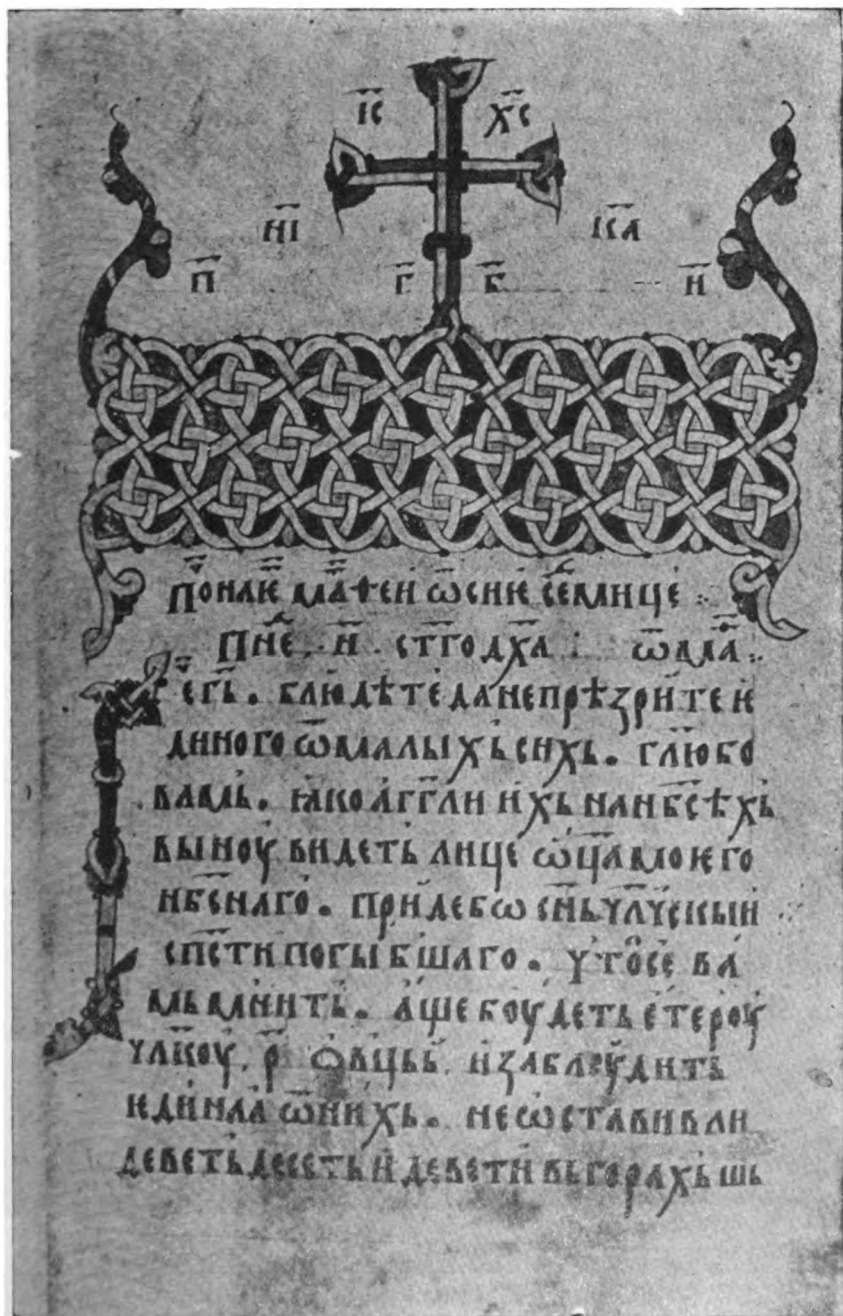 І҃С Х҃С
НІ КА
П Г Б Н
ПОНЛꙖ҃ МАѲЕИ ѾСИѤ СЕ҃МИЦЕ
ПНЕ҃ . Н҃ . СТ҃ГО ДХ҃А : ѾМА҃
Рⷱ҇Е ГЬ҃ . БЛЮДѢТЕ ДА НЕ ПРѢЗРИТЕ Ѥ
ДИНОГО Ѿ МАЛЫХЬ СИХЬ . ГЛ҃Ю БО
ВАМЬ . ꙖКО АГГ҃ЛИ ИХЬ НА НБ҃СѢХЬ
ВЫНОУ ВИДЕТЬ ЛИЦЕ Ѿ҃ЦА МОѤГО
НБ҃СНАГО . ПРИДЕ БѠ СН҃Ь ЧЛ҃ЧСКЫИ
СП҃СТИ ПОГЫБШАГО . ЧТО СЕ ВА
МЬ МНИТЬ . АЩЕ БОУДЕТЬ ЕТЕРОУ
ЧЛ҃КОУ . Р҃ . ѠВЦЬЬ . И ЗАБЛОУДИТЬ
ѤДИНАА Ѿ НИХЬ . НЕ ѠСТАВИВ ЛИ
ДЕВЕТЬДЕСЕТЬ И ДЕВЕТИ ВЬ ГОРАХЬ ШЬ